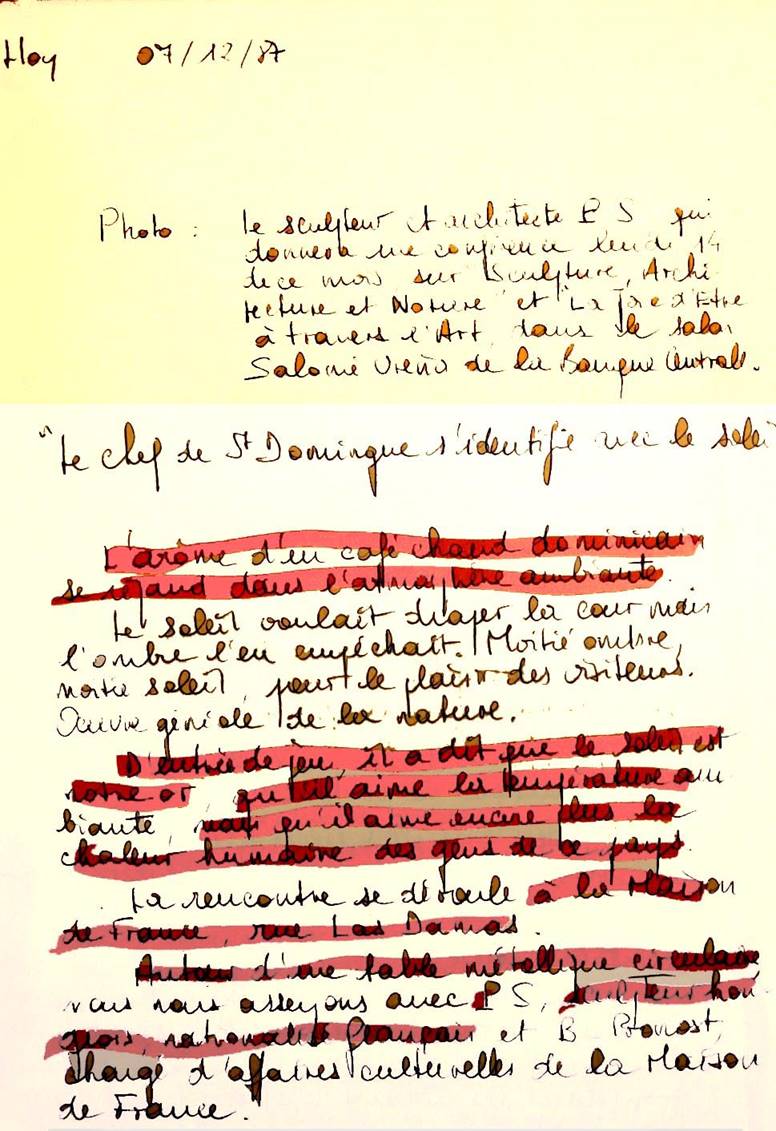 Hoy 07/12/87
Photo : Le sculpteur et architecte P S qui
donnera une conférence lundi 14
de ce mois sur "Sculpture, Archi-
tecture et Nature" et "La Joie d'Etre
à travers l'Art" dans le salon
Salomé Ureña de la Banque Centrale.
"Le chef de St Domingue s'identifie avec le soleil
L'arôme d'un café chaud dominicain
se répand dans l'atmosphère ambiante.
Le soleil voulait draper la cour mais
l'ombre l'en empêchait. Moitié ombre,
moitié soleil, pour le plaisir des visiteurs.
Oeuvre géniale de la nature.
D'entrée de jeu, il a dit que le soleil est
notre or, qu'il aime la température am
biante, mais qu'il aime encore plus la
chaleur humaine des gens de ce pays.
La rencontre se déroule à la Maison
de France, rue Las Damas.
Autour d'une table métallique circulaire
nous nous asseyons avec P S, sculpteur hon
grois, nationalisé français et B Pronost,
chargé d'affaires culturelles de la Maison
de France.